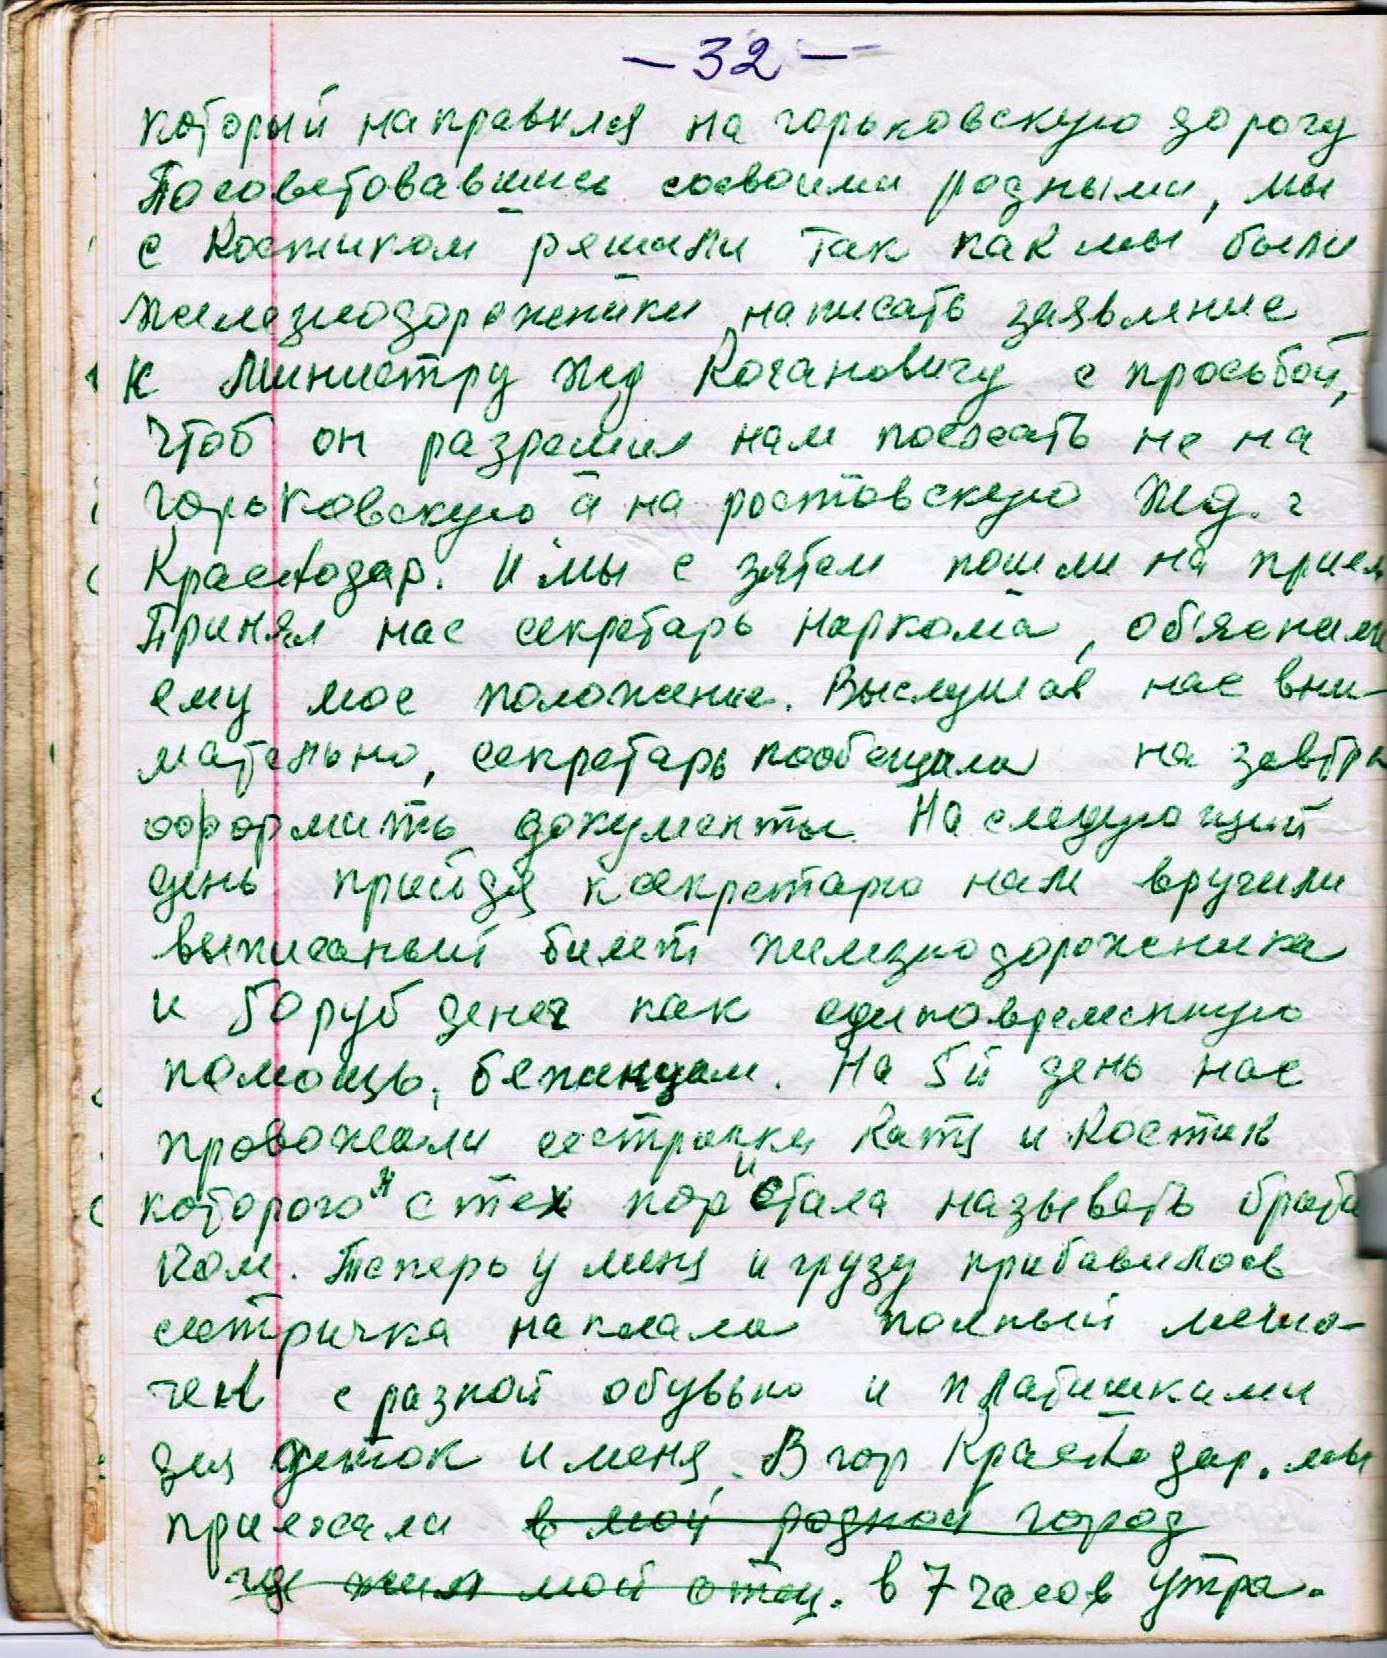 — 32 —
который направился на горьковскую дорогу
Посоветовавшись сосвоими родными, мы
с Костиком ряшили так как мы были
железнодорожники написать заявление
к Министру жд Когановичу с просьбой,
чтоб он разрешил нам поехать не на
горьковскую а на ростовскую жд. г
Краснодар. И мы с зятем пошли на прием
Принял нас секретарь наркома, об'яснили
ему мое положение. Выслушав нас вни-
мательно, секретарь пообещала на завтра
оформить документы. На следующий
день прийдя ксекретарю нам вручили
выписаный билет железнодорожника
и 50 руб денег как единовременную
помощь, бяженцам. На 5й день нас
провожали сестричка Катя и Костик
которого я с тех пор и стала называть брати
ком. Теперь у меня и грузу прибавилось
сестричка наклала полный мешо-
чек с разной обувью и платишками
для деток и меня. В гор Краснодар. мы
приехали в мой родной город
где жил мой отец. в 7 часов утра.